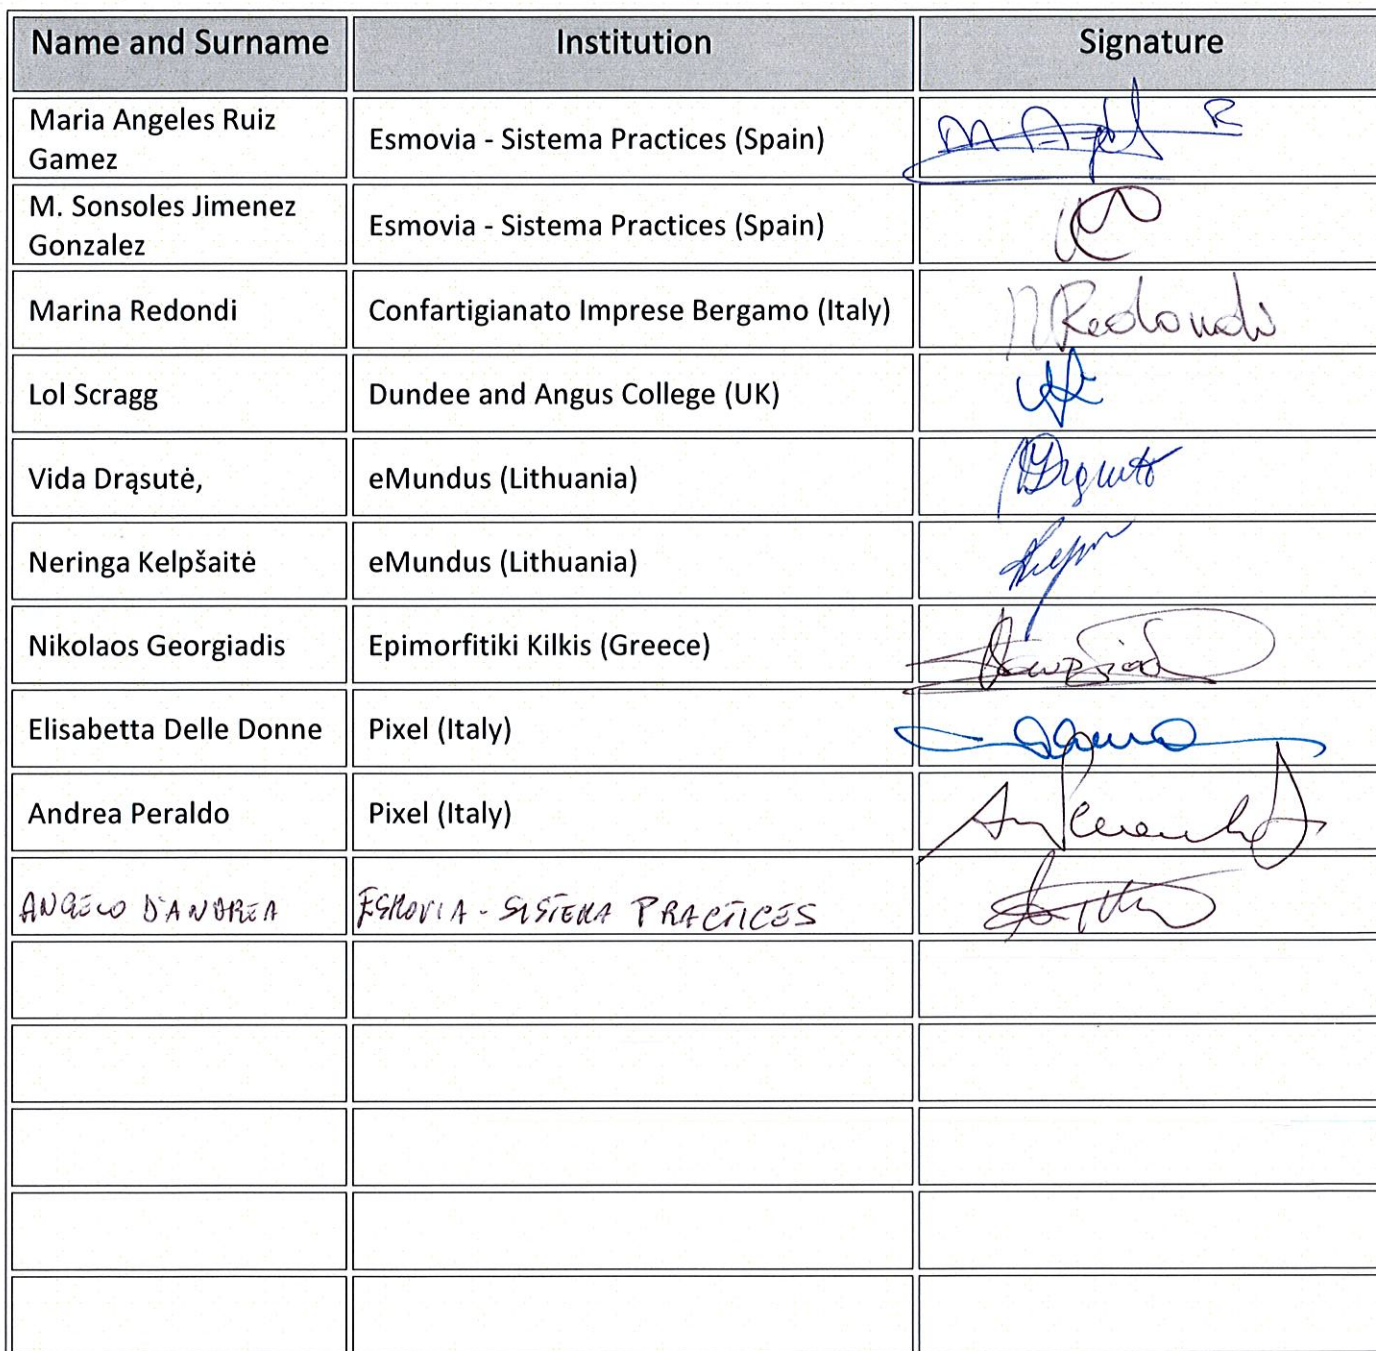 Name and Surname Institution Signature
Maria Angeles Ruiz
Gamez
Esmovia - Sistema Practices (Spain)
M. Sonsoles Jimenez
Gonzalez
Esmovia - Sistema Practices (Spain)
Marina Redondi Confartigianato Imprese Bergamo (Italy) M Redondi
Lol Scragg Dundee and Angus College (UK)
Vida Drąsutė, eMundus (Lithuania)
Neringa Kelpšaitė eMundus (Lithuania)
Nikolaos Georgiadis Epimorfitiki Kilkis (Greece)
Elisabetta Delle Donne Pixel (Italy)
Andrea Peraldo Pixel (Italy)
ANGELO D'ANDREA ESMOVIA - SISTEMA PRACTICES